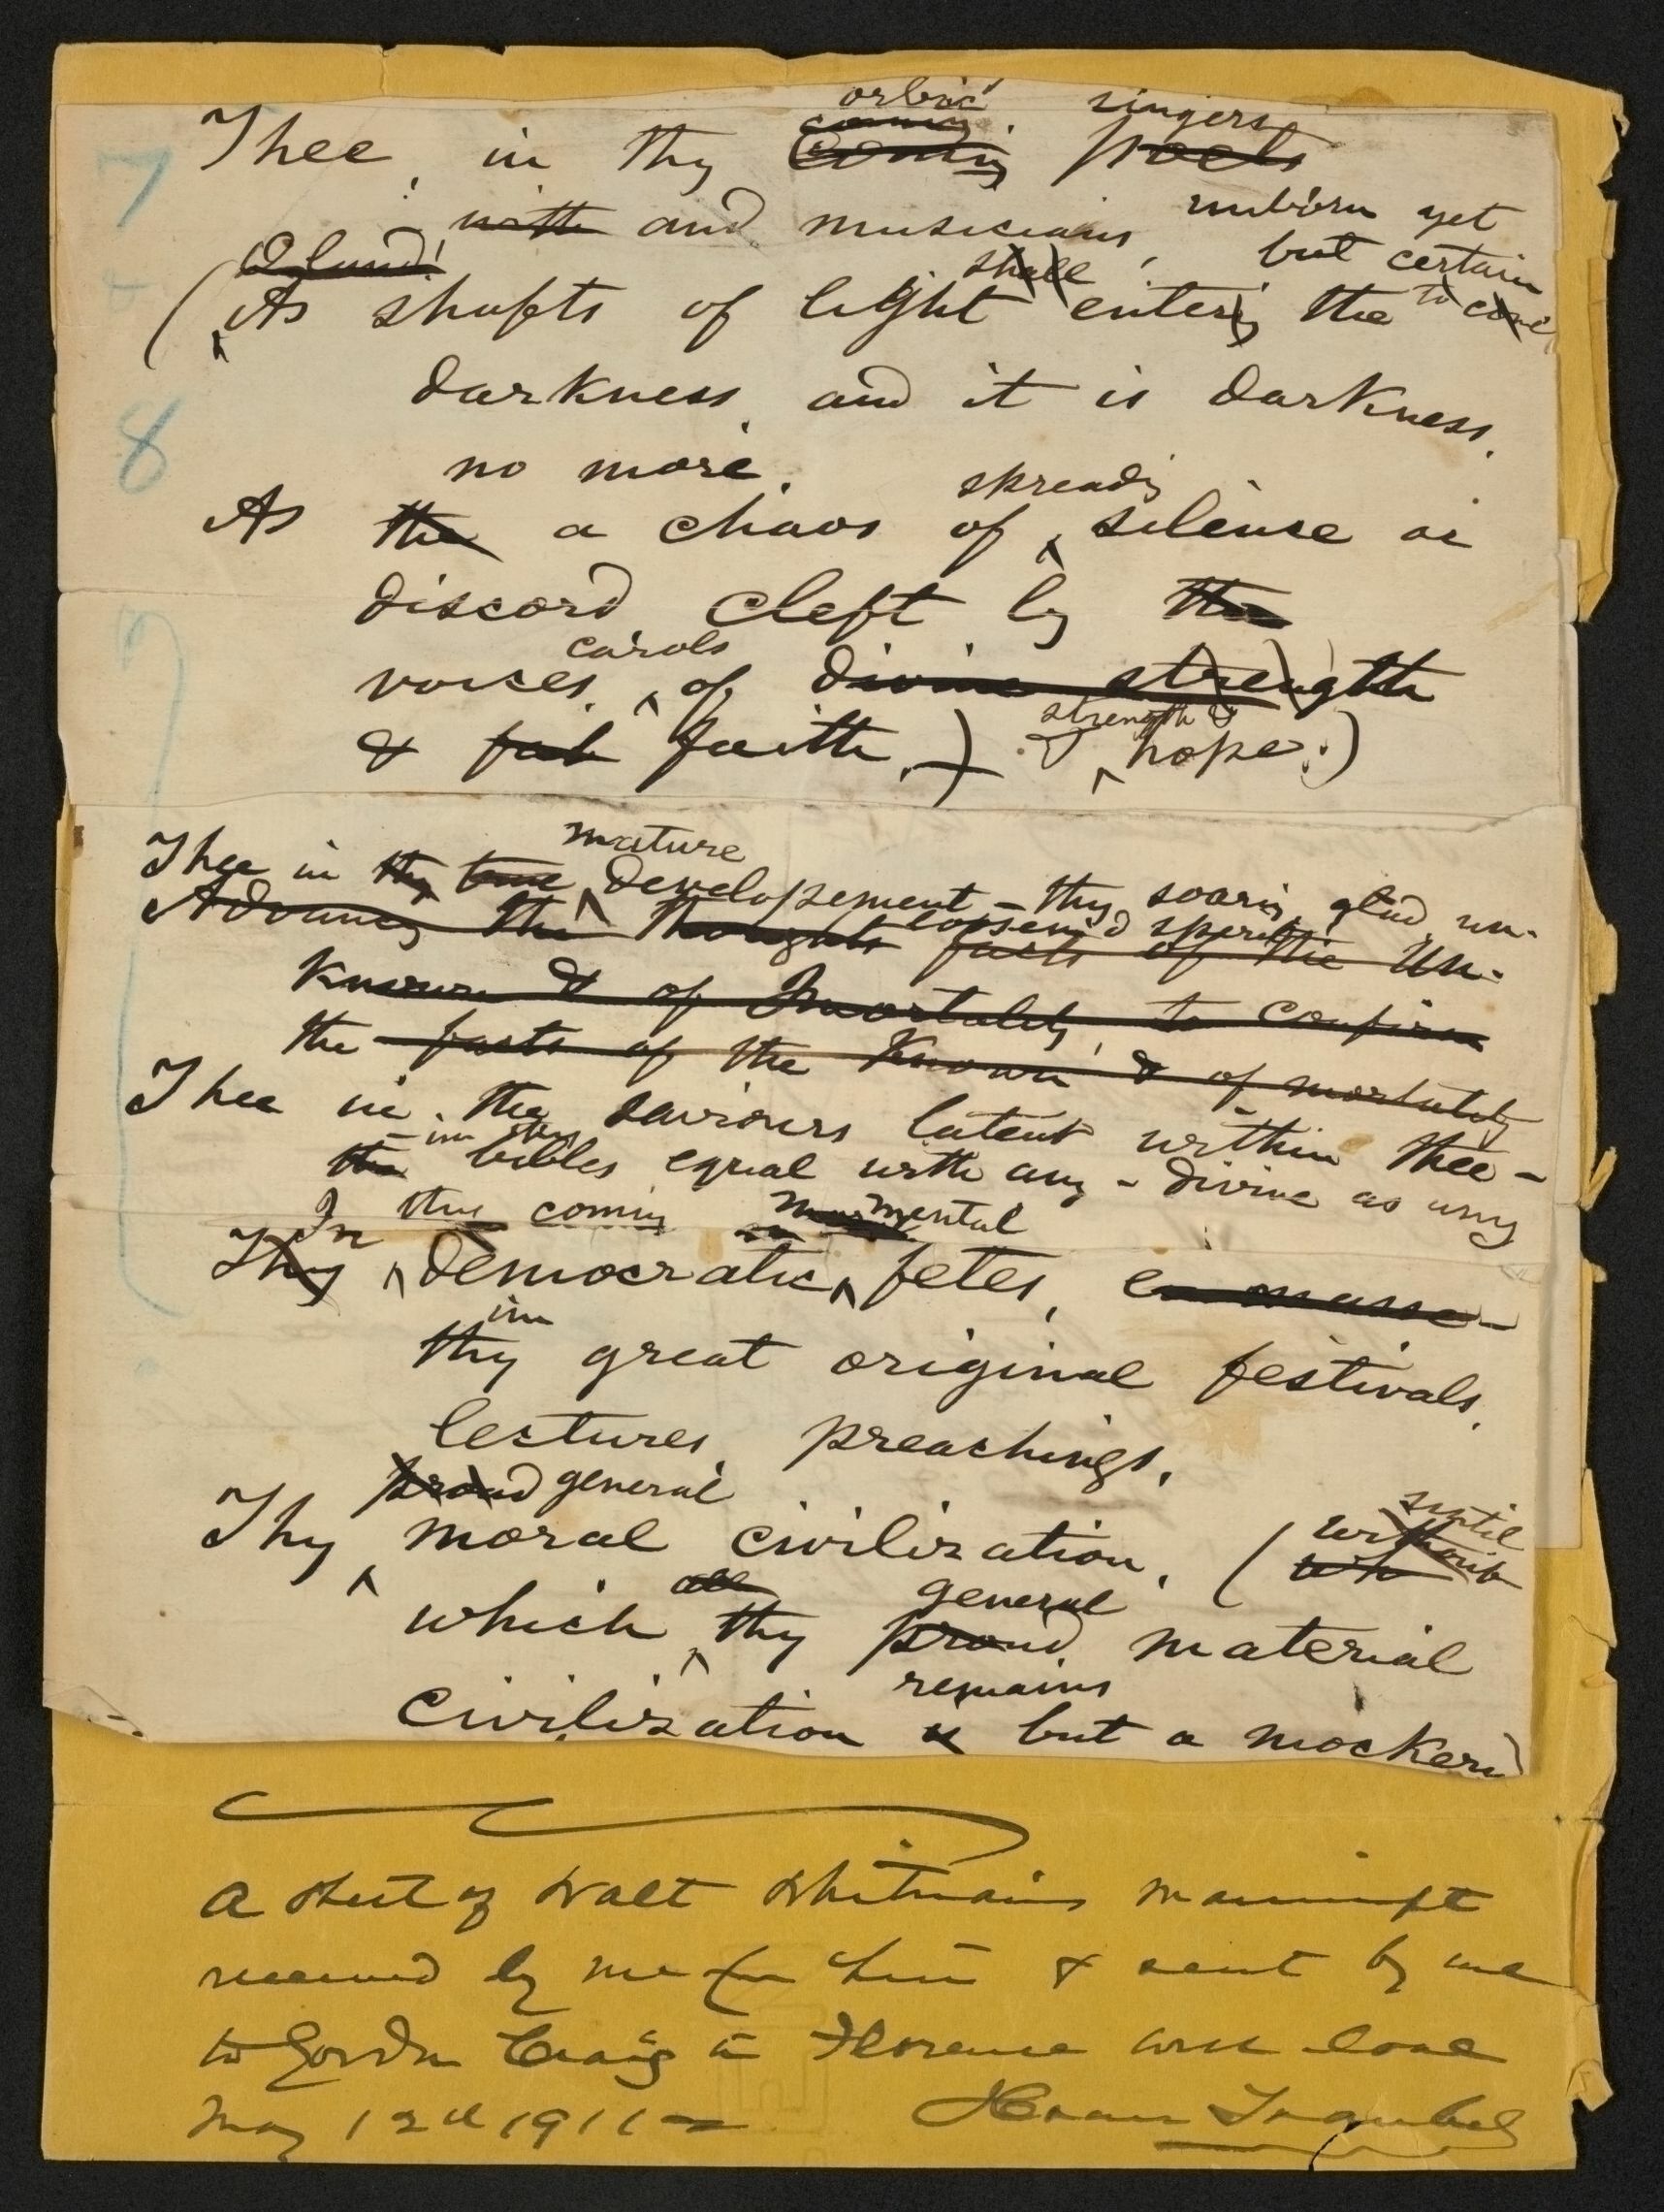 orbic singers
coming
Thee, in thy Coming poets
unborn yet
with and musicians, but certain
O land! shall to come
(As shafts of light entering the
darkness, and it is darkness,
no more,
spreading
As the a chaos of silence or
discord cleft by the
carols
voices, of divine strength
strength &
& fai faith,) & hope.)
mature
Thee in thy true developement – thy soaring, glad un-
loosen'd spirit
Advancing the thoughts facts of the Un-
known & of Immortality, to confirm
the facts of the Known & of mortality
Thee in thy saviours latent within thee –
– in thy
the bibles equal with any – divine as any
In thy coming mental
Thy democratic fetes, en masse –
in
thy great original festivals,
lectures, preachings,
proud general
until
Thy moral civilization, (without
wh
all general
which thy proud material
remains
civilization is but a mockery)
A sheet of Walt Whitman's manuscript
received by me from him & sent by me
to Gordon Craig in Florence with love
May 12th 1911
Horace Traubel
7
8